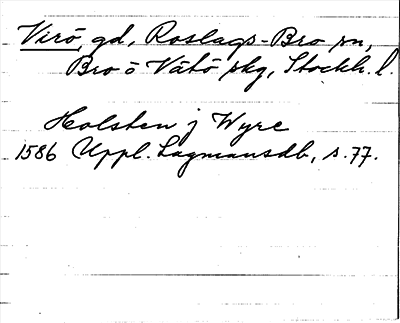 Virö, gd, Roslags-Bro sn,
Bro o Vätö skg, Stockh. l.
Holsten j Wyre
1586 Uppl. Lagmansdb, s. 77.